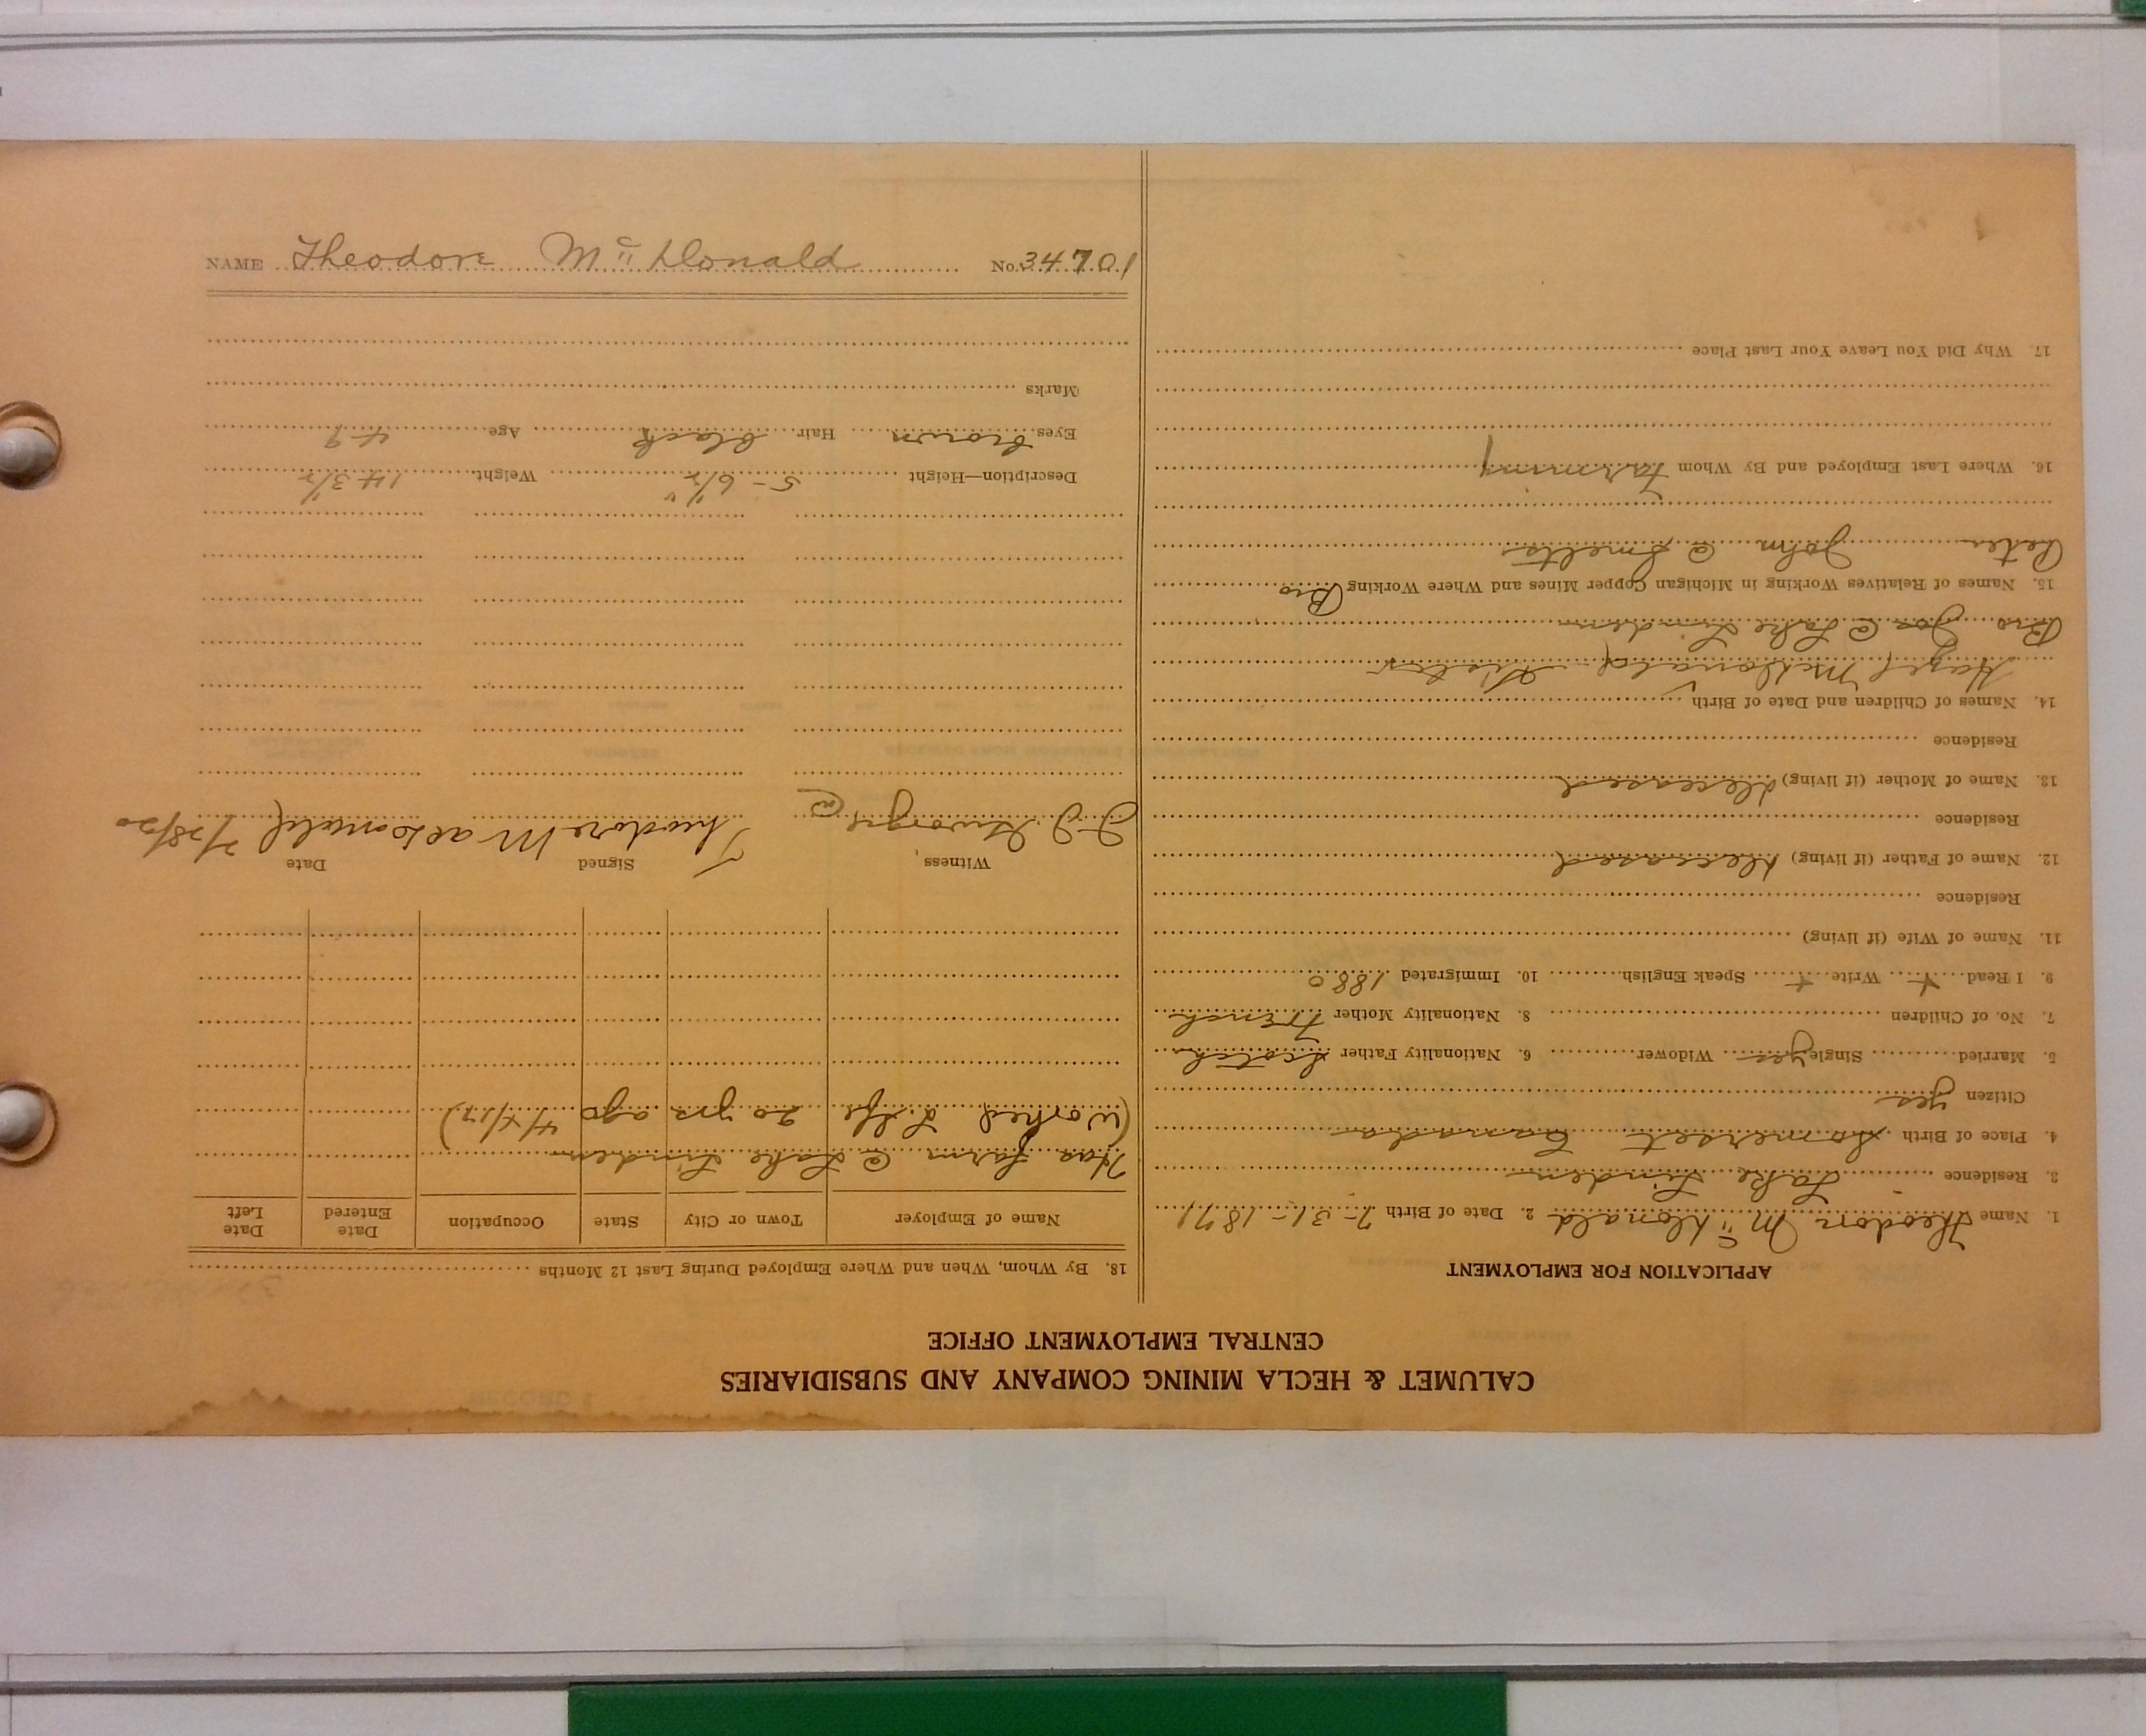 CALUMET & HECLA MINING COMPANY AND SUBSIDIARIES
CENTRAL EMPLOYMENT OFFICE
APPLICATION FOR EMPLOYMENT
1. Name Theodore Mc Donald 2. Date of Birth 7-31-1871
3. Residence Lake Linden
4. Place of Birth Somerset Canada
Citizen yes
5. Married Single yes Widower 6. Nationality Father Scotch
7. No. of Children 8. Nationality Mother French
9. I Read + Write + Speak English 10. Immigrated 1880
11. Name of Wife (if living)
Residence
12. Name of Father (if living) Deceased
Residence
13. Name of Mother (if living) Deceased
Residence
14. Names of Children and Date of Birth
Hazel McDonald Sister
Bro Jos @ Lake Linden
15. Names of Relatives Working in Michigan Copper Mines and Where Working Bro
Peter John @ Smelter
16. Where Last Employed and By Whom Farming
17. Why Did You Leave Your Last Place
18. By Whom, When and Where Employed During Last 12 Months
Name of Employer Town or City State Occupation Date Entered Date Left
Has farm @ Lake Linden
(Worked 20 yrs ago
Witness Signed Date
Theodore MacDonald 7/28/20
Description—Height 5-6 1/2" Weight 143 1/2
Eyes brown Hair black Age 49
Marks
NAME Theodore Mc Donald No. 34701